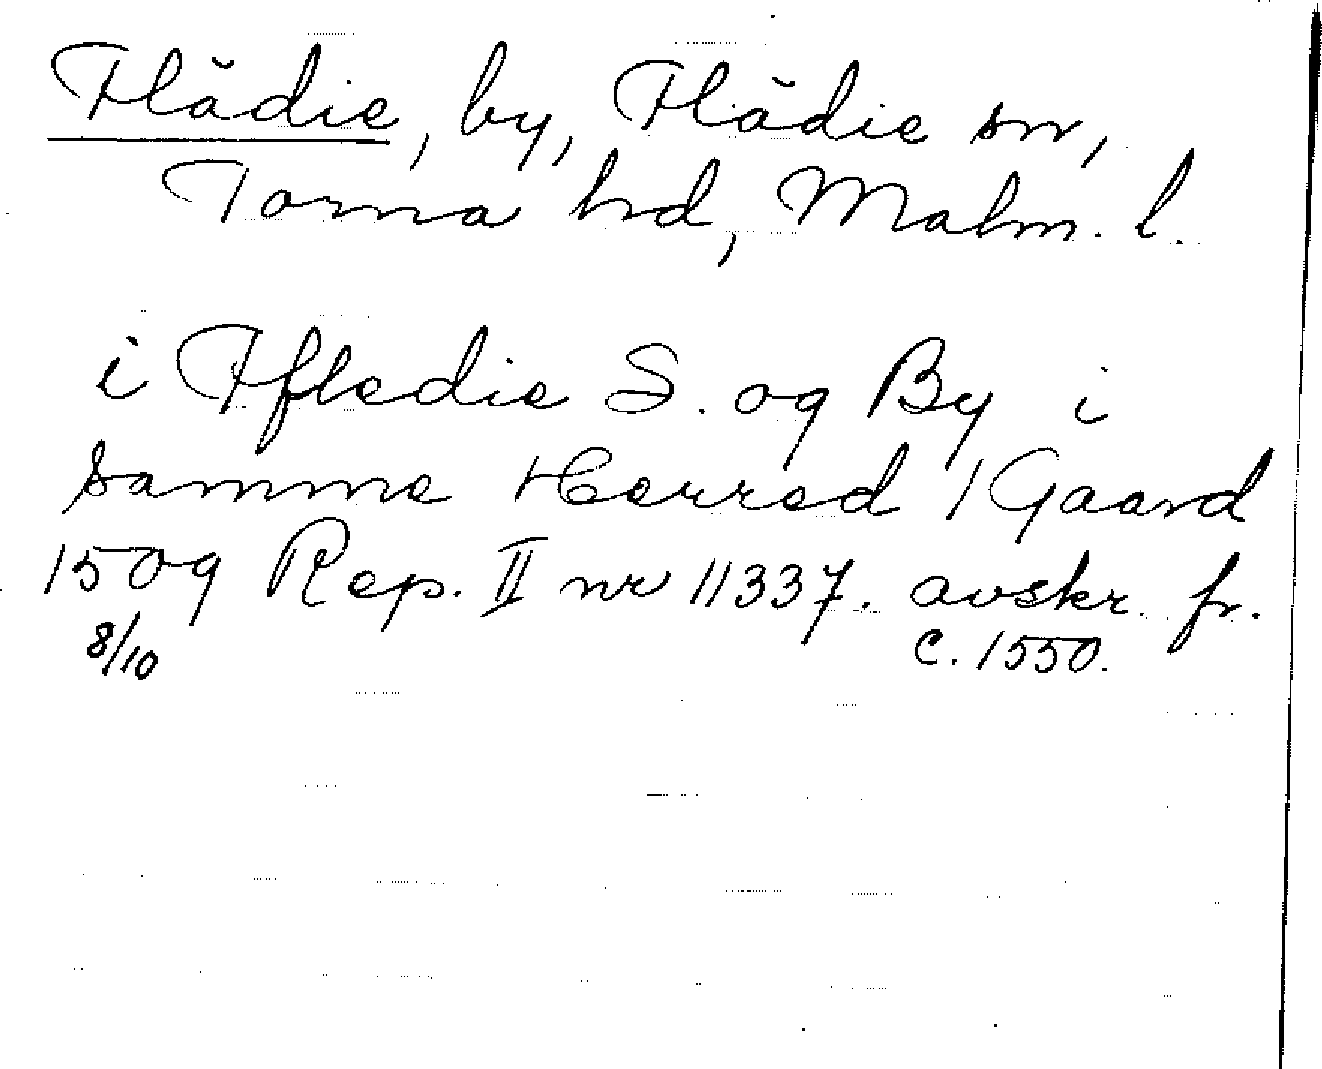 Flädie, by, Flädie sn,
Torna hd, Malm. l.
i Ffledie S. og By i
samme Herred 1 Gaard
1509 Rep. II nr 11337. avskr. fr.
8/10 c. 1550.